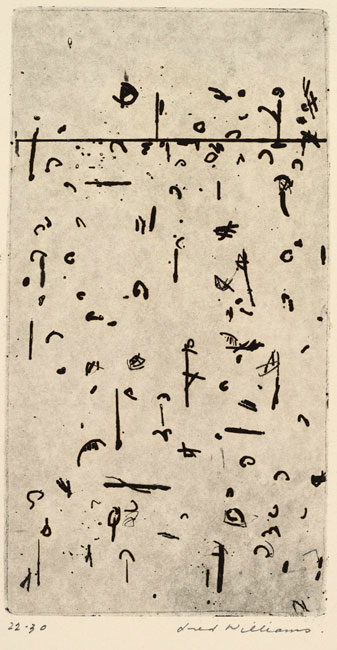 22·30 Fred Williams.